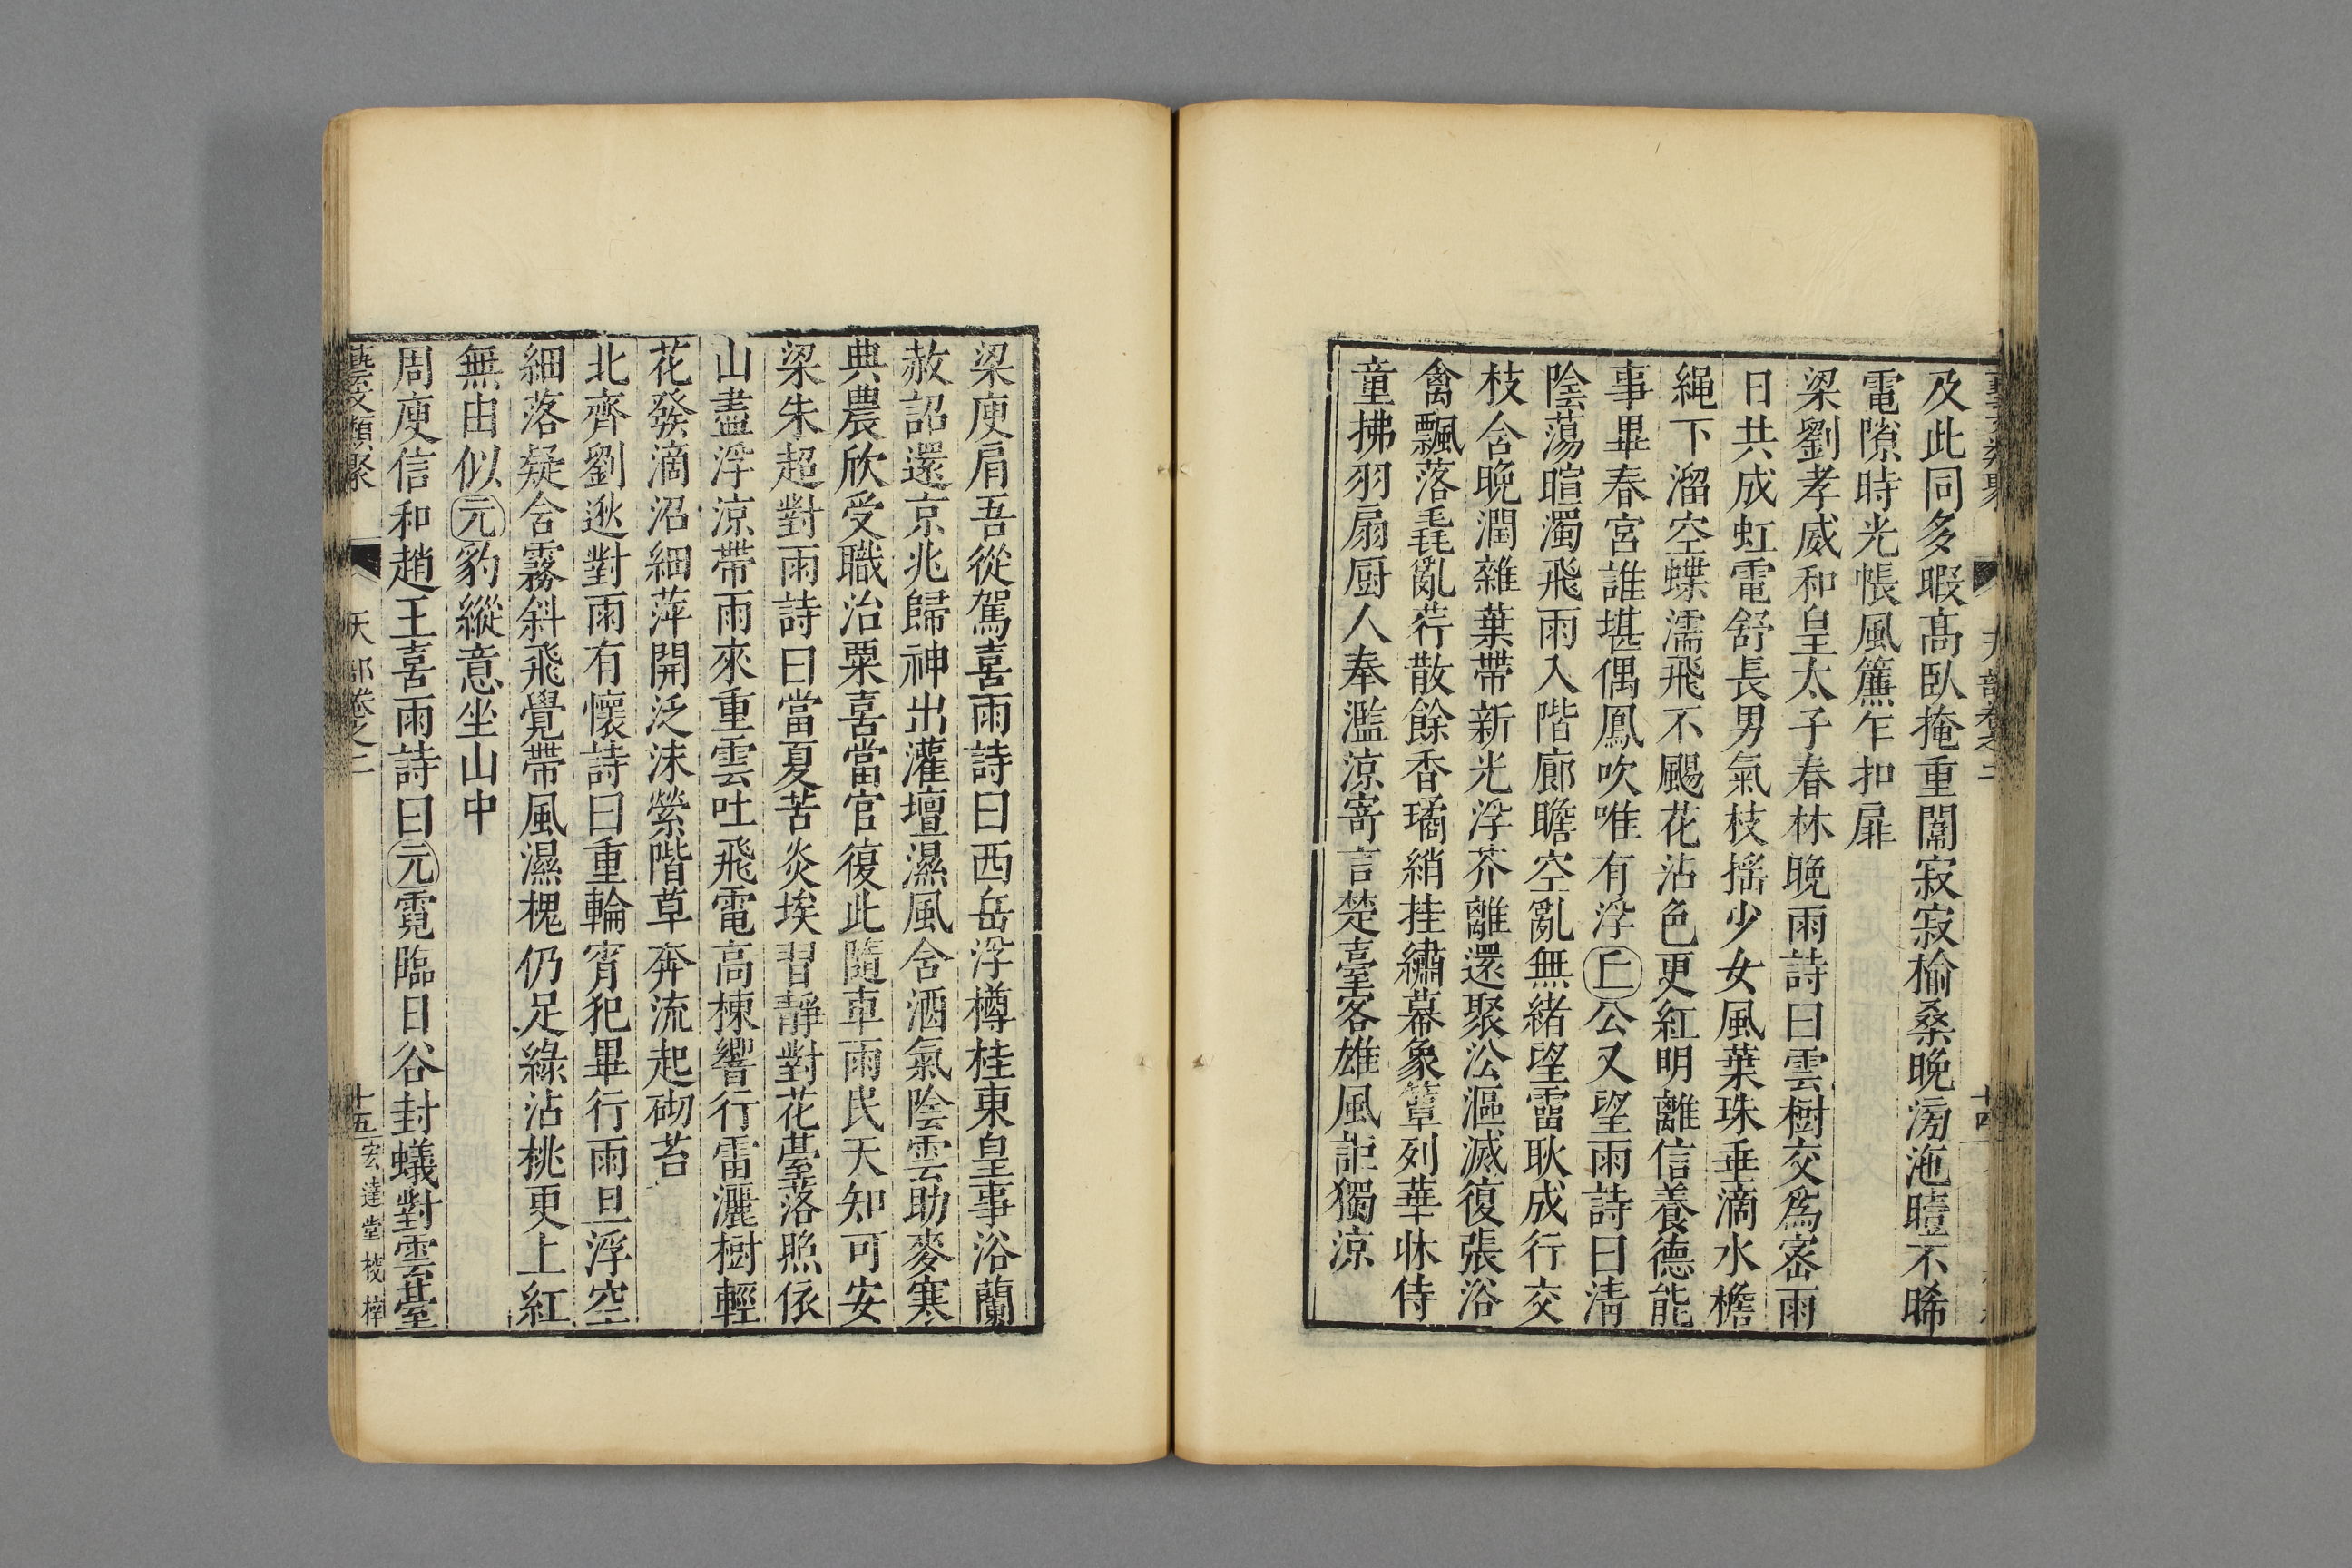 及此同多暇髙臥掩重闈寂寂榆桑晚滂沲曀不晞
電隙時光帳風簾乍扣扉
梁劉孝威和皇太子春林晚雨詩曰雲樹交爲宻雨
日共成虹電舒長男氣枝搖少女風葉珠垂滴水檐
繩下溜空蝶濡飛不颺花沾色更紅明離信養德能
事畢春宮誰堪偶鳳吹唯有浮丘公又望雨詩曰清
陰蕩暄濁飛雨入階廊瞻空亂無緒望霤耿成行交
枝含晚潤雜葉帶新光浮芥離還聚沿漚滅復張浴
禽飄落毳亂荇散餘香璚綃挂繡幕象簟列華牀侍
童拂羽扇厨人奉濫凉寄言楚臺客雄風詎獨凉
藝文類聚 天部卷之二 十四
梁庾肩吾從駕喜雨詩曰西岳浮樽桂東皇事浴蘭
赦詔還京兆歸神出灌壇濕風含酒氣陰雲助麥寒
典農欣受職治粟喜當官復此隨車雨民天知可安
梁朱超對雨詩曰當夏苦炎埃習靜對花臺落照依
山盡浮涼帶雨來重雲吐飛電高棟響行雷灑樹輕
花發滴沼細萍開泛沫縈階草奔流起砌苔
北齊劉逖對雨有懷詩曰重輪宵犯畢行雨旦浮空
細落疑含霧斜飛覺帶風濕槐仍足綠沾桃更上紅
無由似元豹縱意坐山中
周庾信和趙王喜雨詩曰元霓臨日谷封蟻對雲臺
藝文類聚 天部卷之二 十五 宏達堂校梓